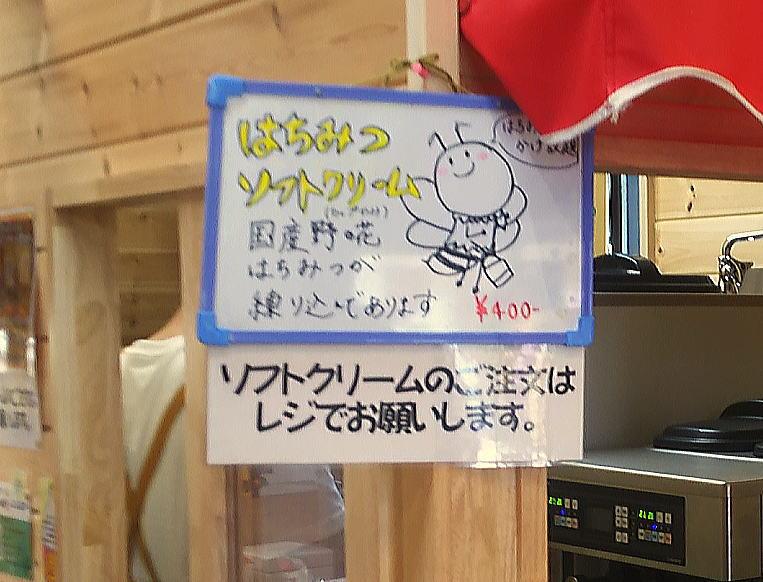 はちみつ
ソフトクリーム
国産野の花
はちみつが
練り込んであります
¥400-
かけ放題
ソフトクリームのご注文は
レジでお願いします。